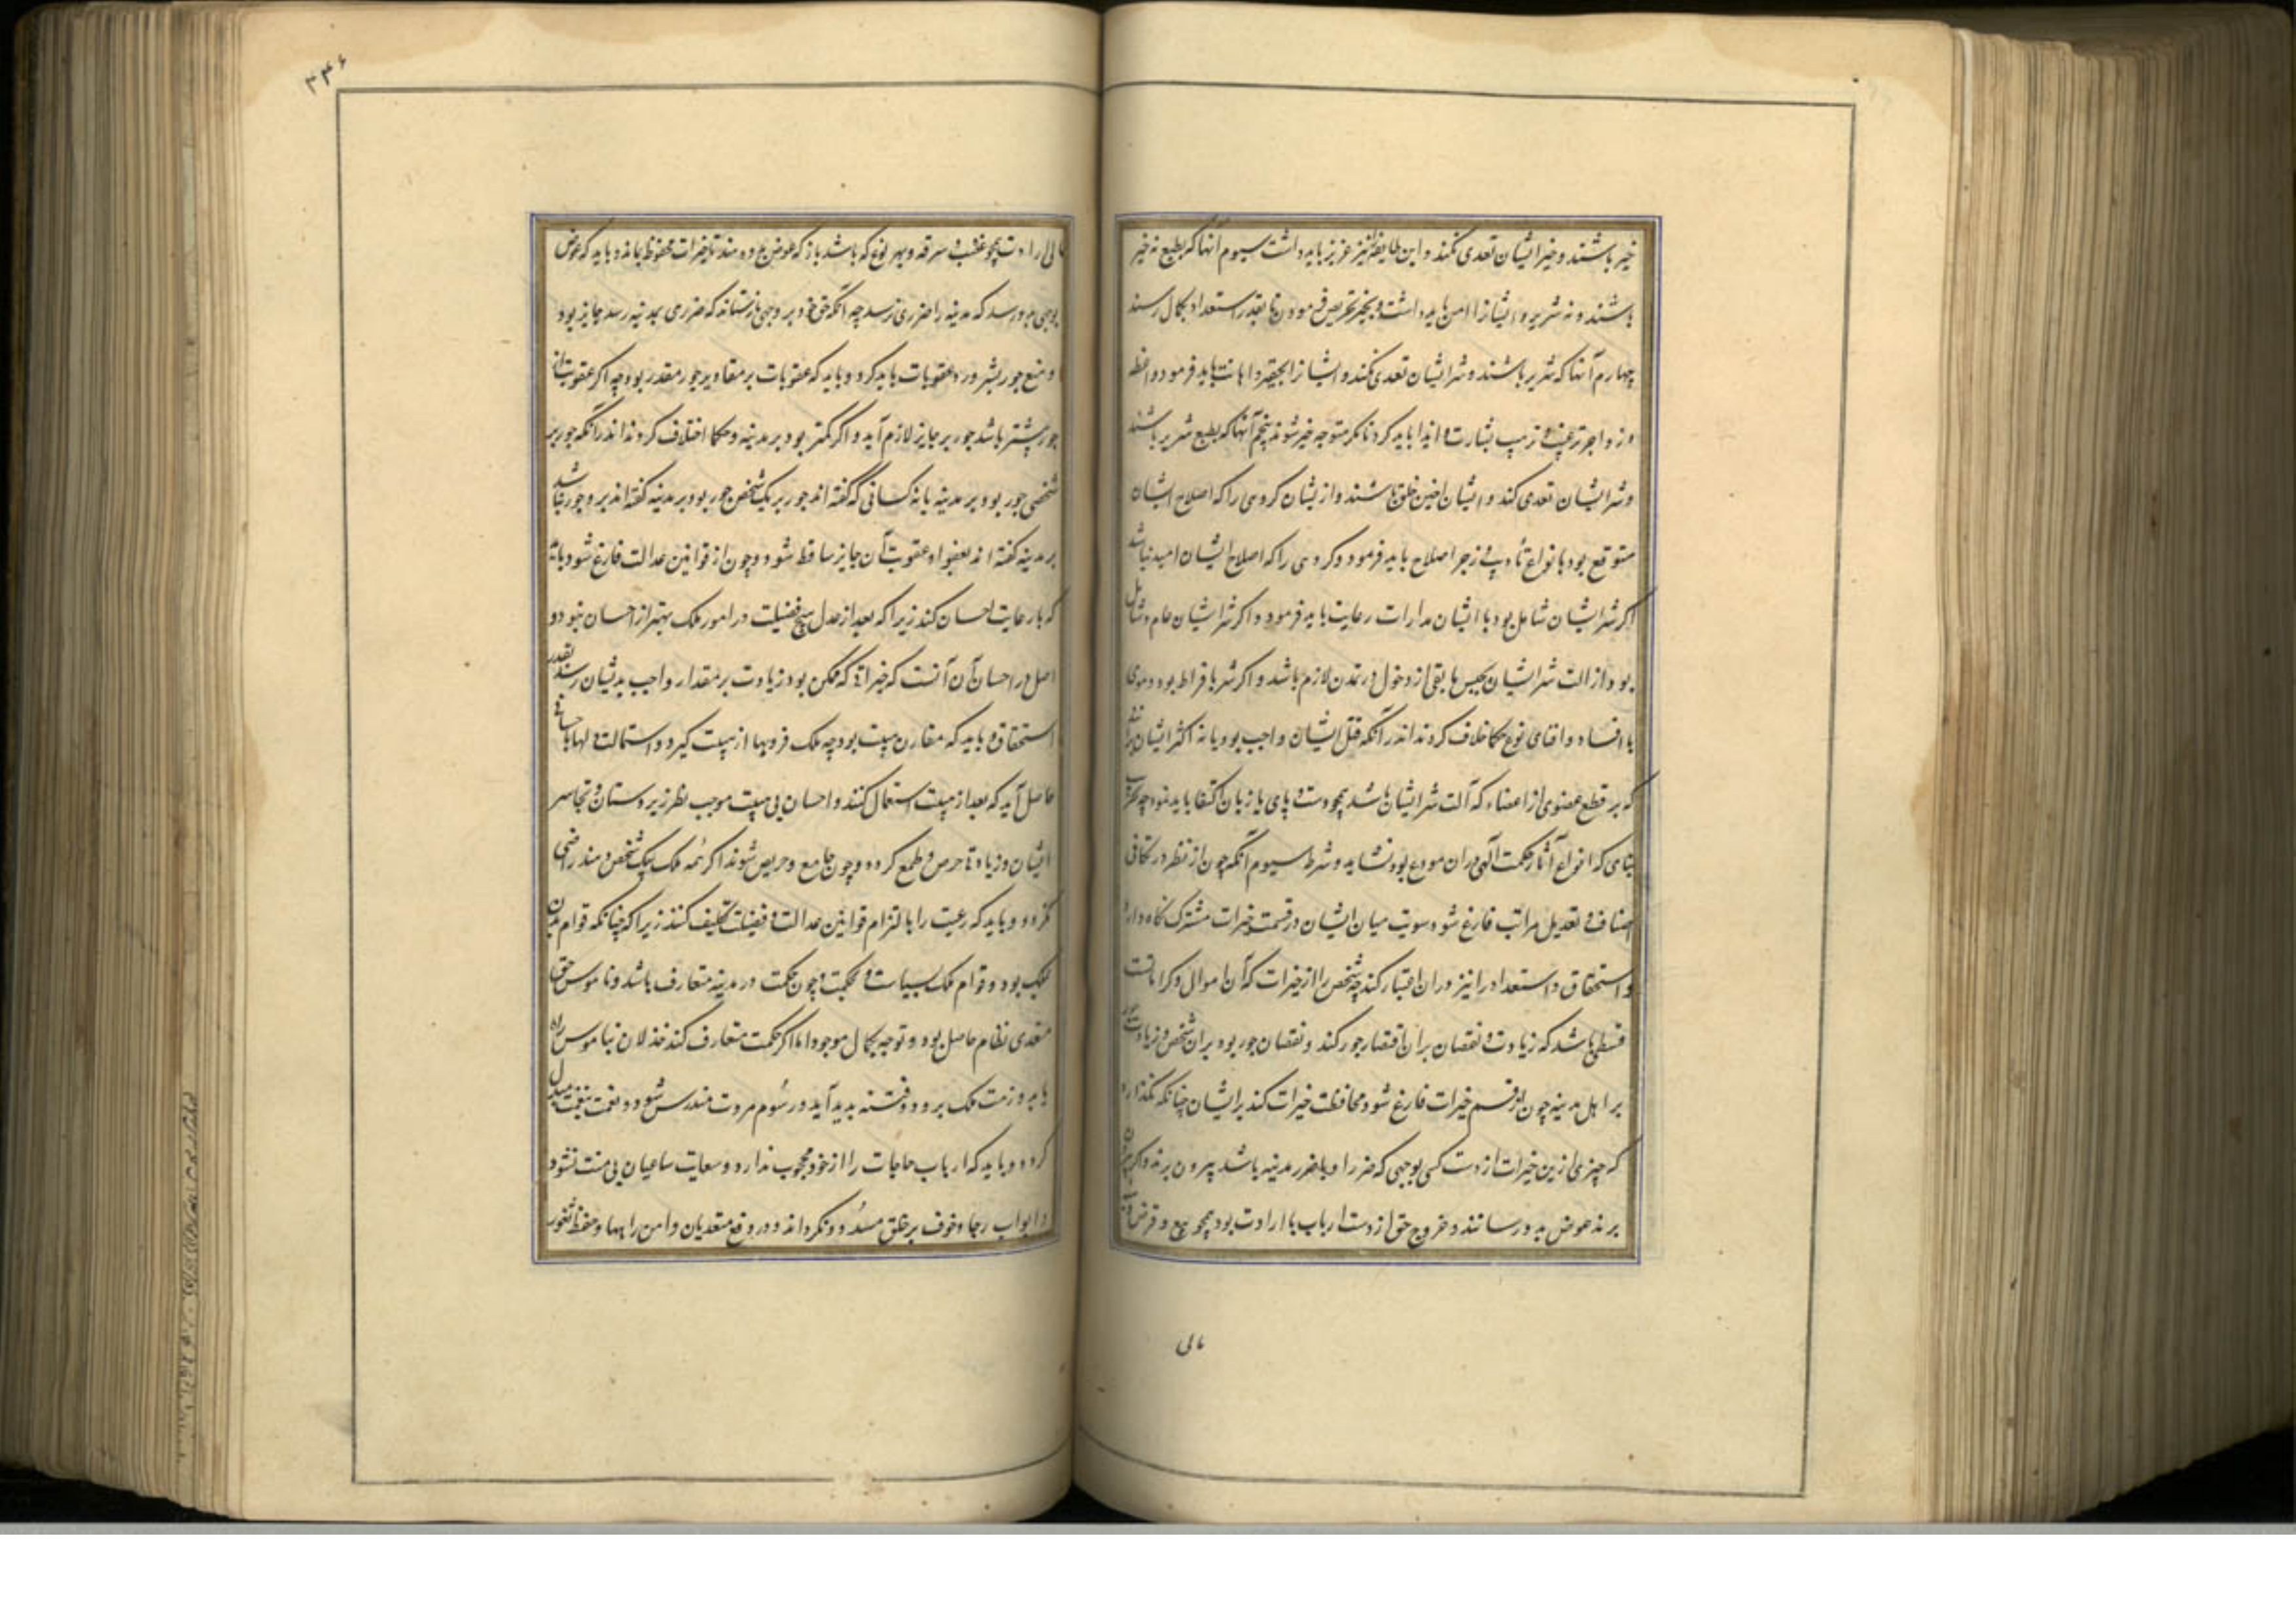 خیر باشند و خیر ایشان تعدی نکند و این طایفه را نیز عزیز باید داشت سیوم آنها که بطبع نه خیر
باشند و نه شریر و ایشانرا امن باید داشت و بخیر تحریص فرمودن تا بقدر استعداد بکمال رسند
چهارم آنها که شریر باشند و شر ایشان تعدی نکند و ایشانرا تحقیر و اهانت باید فرمود و
و زواجر ترغیب و ترهیب بشارت و انذار باید کرد تا مگر متوجه خیر شوند پنجم آنها که بطبع شریر باشند
و شر ایشان تعدی کند و ایشان اخس خلق باشند و ازیشان گروهی را که اصلاح ایشان
متوقع بود بانواع تأدیب و زجر اصلاح باید فرمود و گروهی را که اصلاح ایشان امید نباشد
اگر شر ایشان شامل نبود با ایشان مدارات رعایت باید فرمود و اگر شر ایشان عام و شامل
بود ازالت شر ایشان بحبس یا بقی از دخول در تمدن لازم باشد و اگر شر بافراط بود و مودی
با افساد و افنای نوع حکما خلاف کرده‌اند اندر آنکه قتل ایشان واجب بود یا نه اکثر ایشان برآنند
که بر قطع عضوی از اعضاء که آلت شر ایشان باشد همچو دست و پای یا زبان اکتفا باید نمود چه تخریب
بنای که انواع آثار حکمت آلهی در ان مودع بود نشاید و شرط سیوم آنکه چون از نظر در تکافی
اصناف و تعدیل مراتب فارغ شود سویت میان ایشان در قسمت خیرات مشترک نگاه دارد
و استحقاق و استعداد را نیز در ان اعتبار کند چه شخص را از خیرات که آن اموال و کراماتست
قسطی باشد که زیادت و نقصان بر ان اقتضا جور کند و نقصان جور بود بر ان شخص و زیادت جور
بر اهل مدینه چون از قسم خیرات فارغ شود محافظت خیرات کند بر ایشان چنانکه نگذارد
که چیزی ازین خیرات از دست کسی بوجهی که ضرر او یا ضرر مدینه باشد بیرون برند و اگر بیرون
برند عوض بدو رسانند و خروج حق از دست ارباب یا ارادت بود همچو بیع و قرض
مالی
۳۴۶
یا بی ارادت همچو غضب و سرقه و بهر نوع که باشد باز که عوض بدو دهند تا خیرات محفوظ بماند و باید که عوض
بوجهی بدو رسد که مدینه را ضرری نرسد چه آنکه حق خود بر وجهی بازستاند که ضرری بمدینه رسد جایز بود
و منع جور بشرور و عقوبات باید کرد و باید که عقوبات بر مقادیر جور مقدر بود چه اگر عقوبت از
جور بیشتر باشد جور بر جایز لازم آید و اگر کمتر بود بر مدینه و حکما اختلاف کرده‌اند اندر آنکه جور بر
شخصی جور بود بر مدینه یا نه کسانی که گفته اند جور بر یک شخص جور بود بر مدینه گفته اند بر و جور باشد
بر مدینه گفته اند بعفو او عقوبت آن جایز ساقط شود و چون از قوانین عدالت فارغ شود باید
که با رعایت احسان کند زیرا که بعد از عدل هیچ فضیلت در امور ملک بهتر از احسان نبود و
اصل در احسان آن آنست که خیراتی که ممکن بود زیادت بر مقدار واجب بدیشان رسد بقدر
استحقاق و باید که مقارن هیبت بود چه ملک فر و بها از هیبت گیرد و استمالت دلها باحسانی
حاصل آید که بعد از هیبت استعمال کنند و احسان بی هیبت موجب بطر زیردستان و تجاسر
ایشان و زیادتی حرص و طمع گردد و چون جامع و حریص شوند اگر همه ملک بیک شخص دهند راضی
نگردد و باید که رعیت را بالتزام قوانین عدالت و فضیلت تکلیف کند زیرا که چنانکه قوام بدن
بود و قوام ملک بسیاست و حکمت و چون حکمت در مدینه متعارف باشد و ناموس حق
مقتدی نظام حاصل بود و توجه بکمال موجود اما اگر حکمت متعارف کند خذلان بناموس راه
یابد و زینت ملک برود و فتنه پدید آید و رسوم مروت مندرس شود و نعمت بنقمت مبدل
گردد و باید که ارباب حاجات را از خود محجوب ندارد و سعایت ساعیان بی منت نشنود
و ابواب رجا و خوف بر خلق مسدود نگرداند و در دفع متعدیان و امن راهها و حفظ ثغور